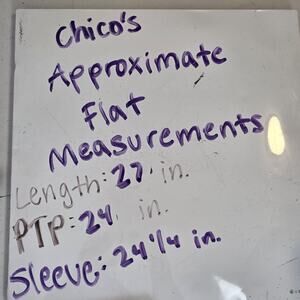 Chico's
Approximate
Flat
Measurements
Length: 27. in.
PTP: 24. in.
Sleeve: 24 1/4 in.